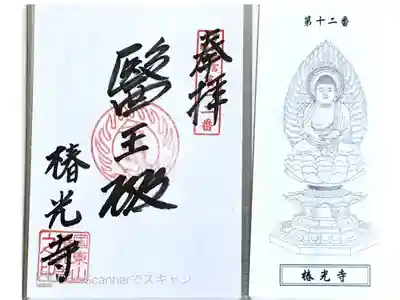 奉拝
醫王殿
椿光寺
第十二番
椿光寺
scannerでスキャン